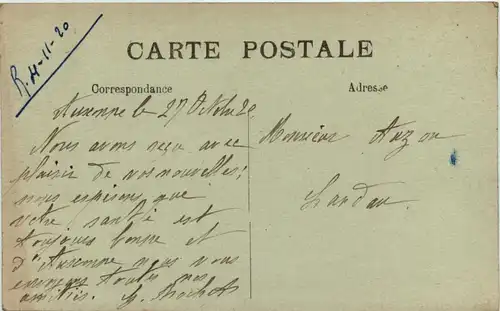 R. 4-11-20
CARTE POSTALE
Correspondance
Adresse
Auxonne le 27 Octobre 20
Nous avons reçu avec
plaisir de vos nouvelles;
nous espérons que
votre santé est
toujours bonne et
d'Auxonne nous vous
envoyons toutes nos
amitiés.
Monsieur
Landau.